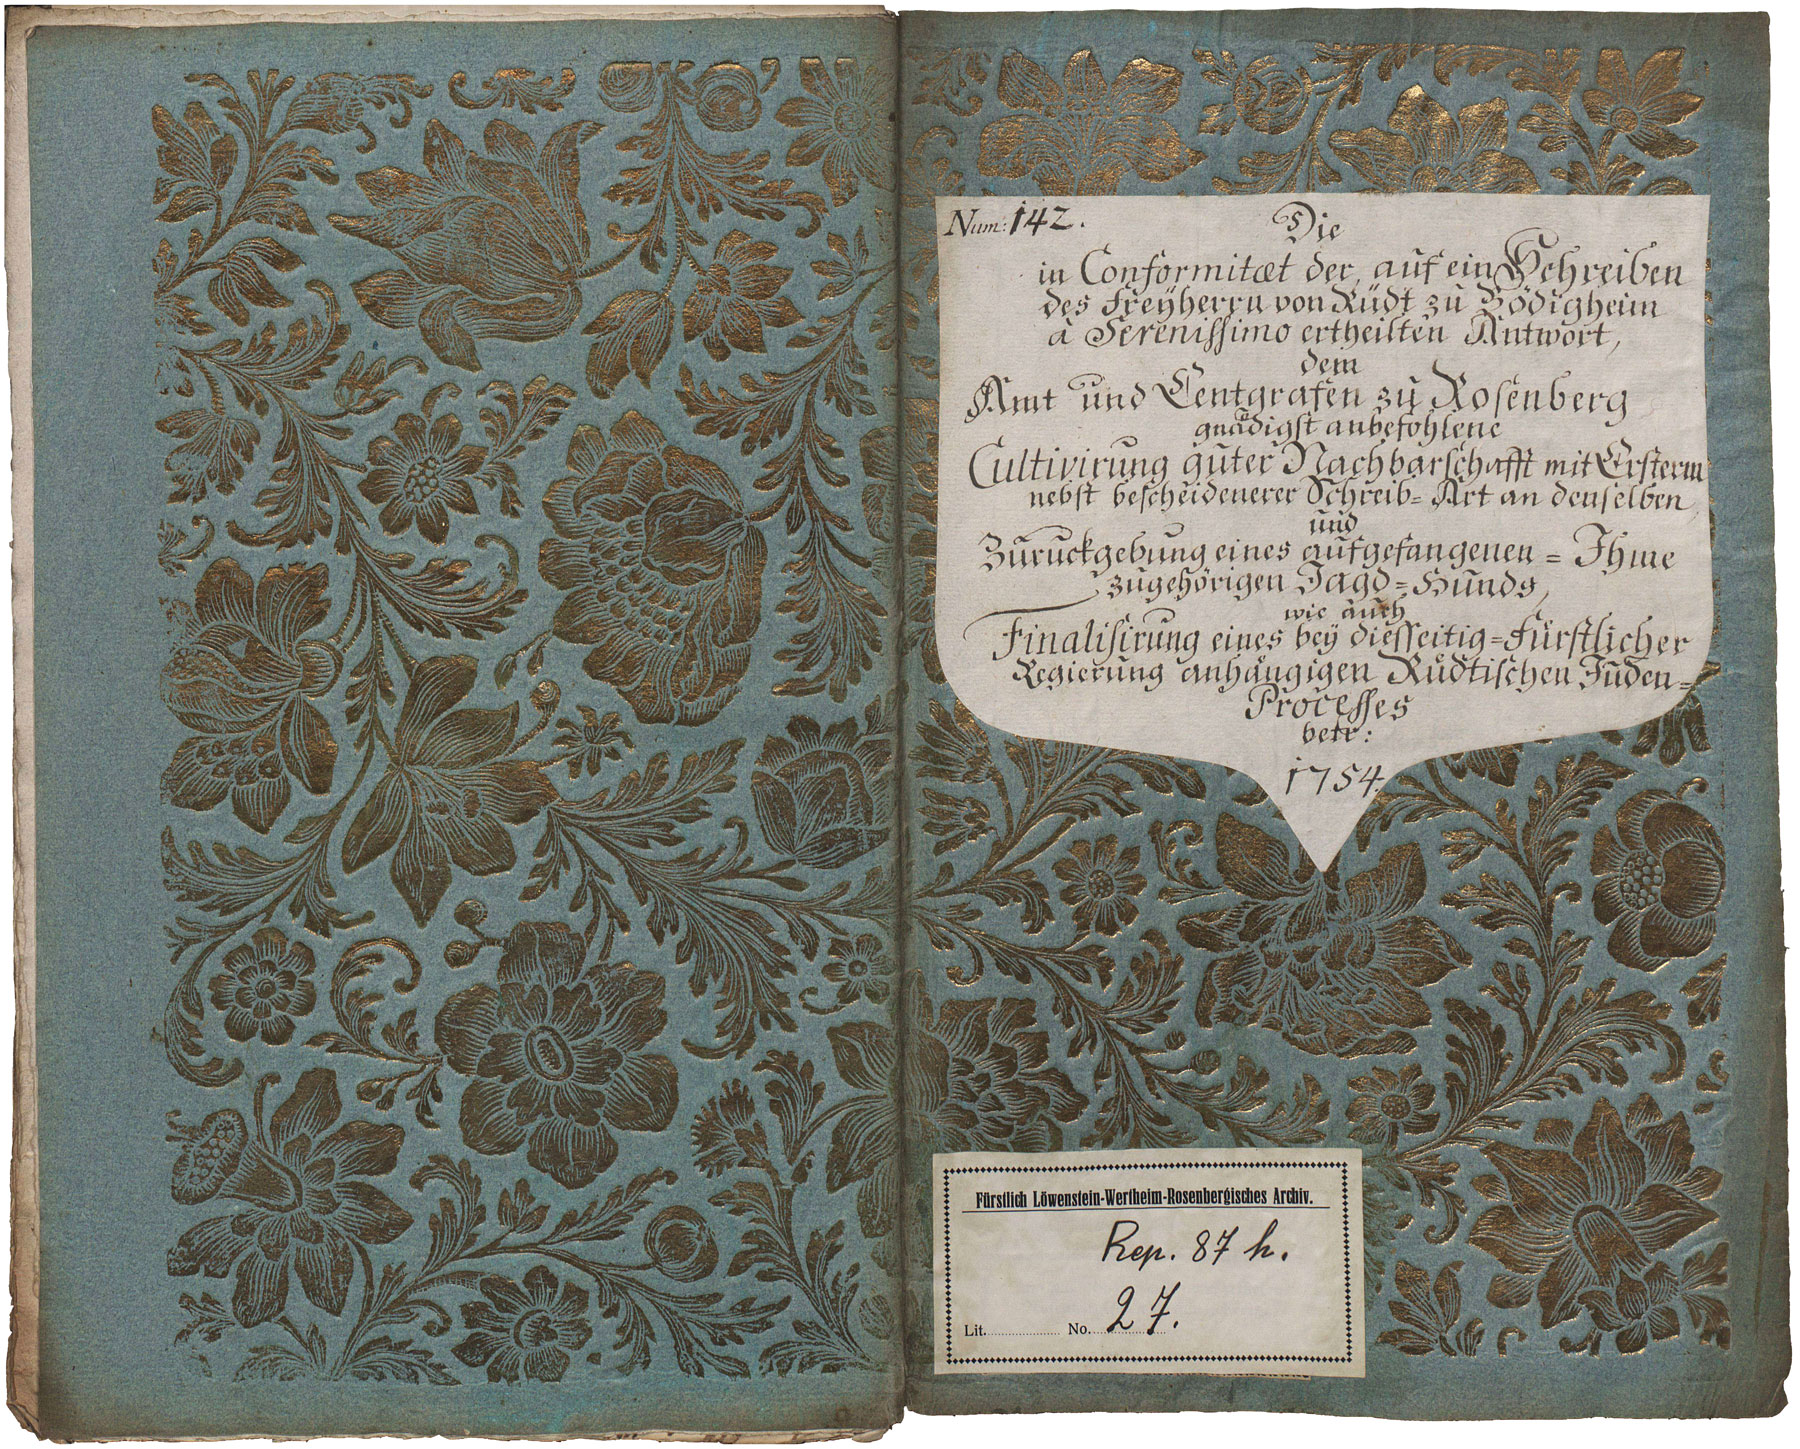 Num: 142.
Die
in Conformitæt der, auf ein Schreiben
des Freyherrn von Rüdt zu Bödigheim
à Serenissimo ertheilten Antwort,
dem
Amt und Centgrafen zu Rosenberg
gnädigst anbefohlene
Cultivirung guter Nachbarschafft mit Ersterm
nebst bescheidenerer Schreib=Art an denselben,
und
Zuruckgebung eines aufgefangenen = Ihme
zugehörigen Jagd=Hunds,
wie auch
Finalisirung eines bey diesseitig=Fürstlicher
Regierung anhängigen Rüdtischen Juden=
Processes
betr:
1754.
Fürstlich Löwenstein-Wertheim-Rosenbergisches Archiv.
Rep. 87 h.
Lit. No. 27.